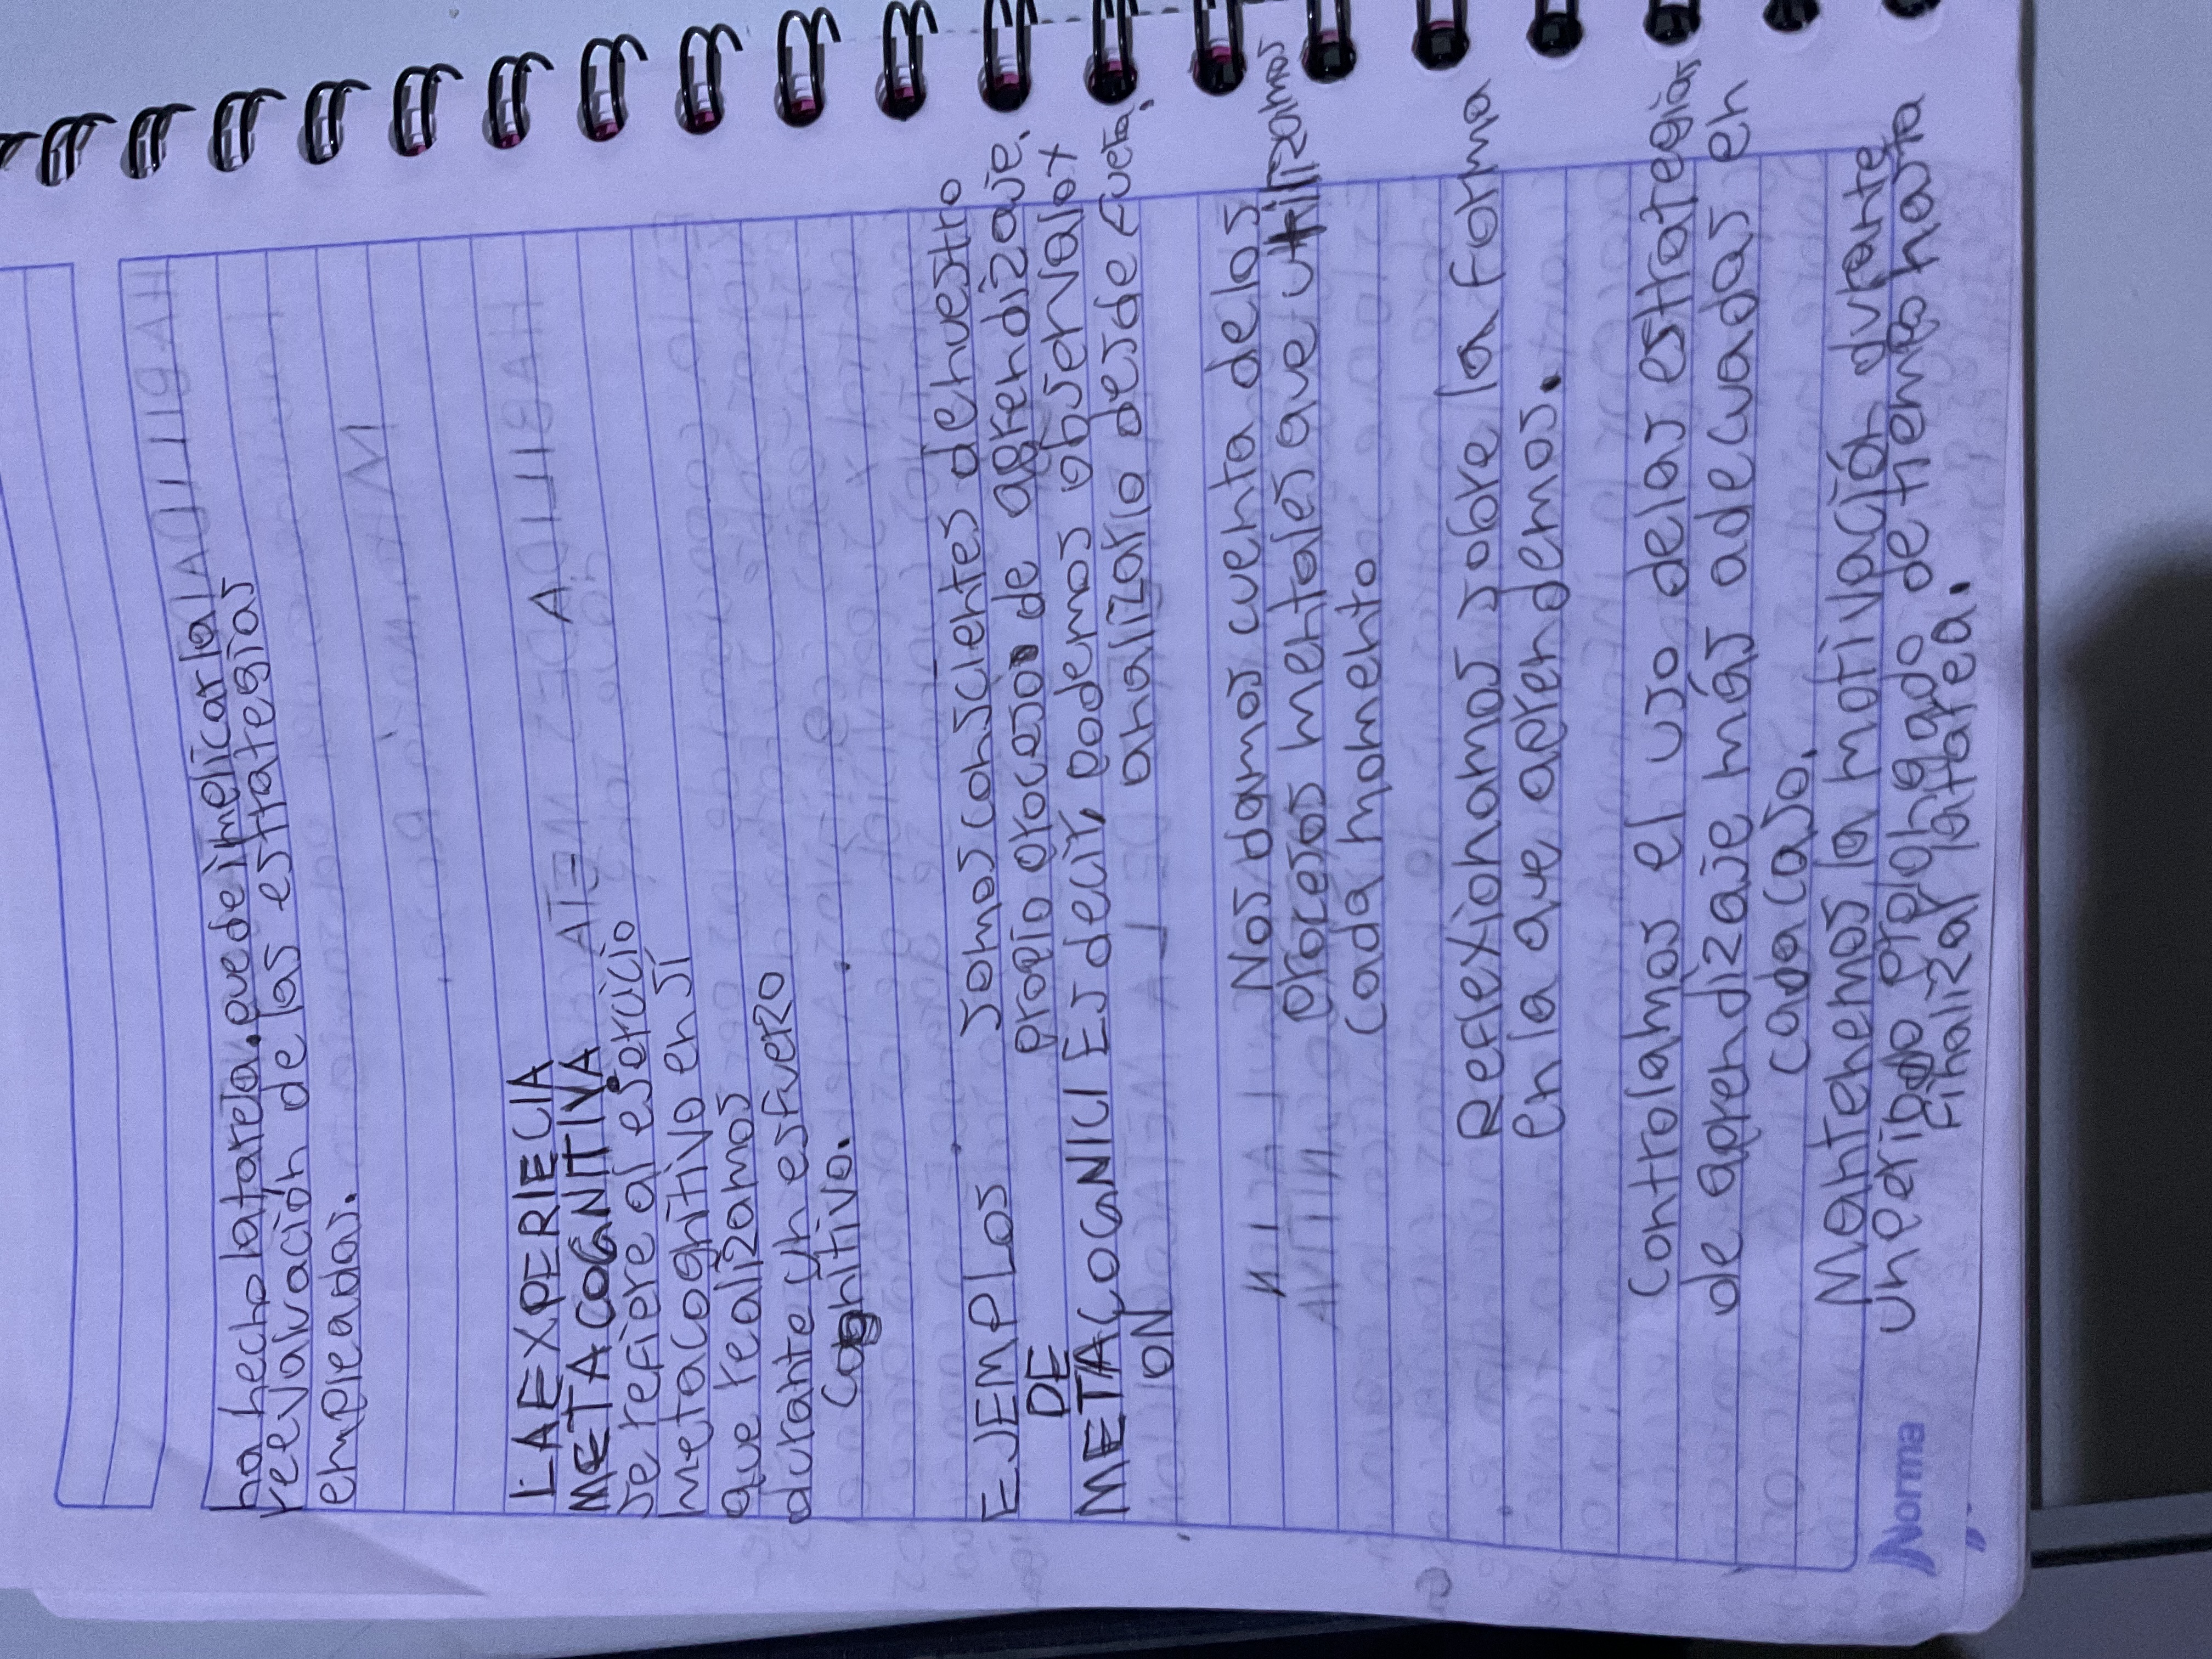 ha hecho la tarea. puede implicar la
reevaluación de las estrategias
empleadas.
LA EXPERIECIA
METACOGNITIVA
se refiere al ejercicio
metacognitivo en sí
que realizamos
durante un esfuerzo
cognitivo.
EJEMPLOS
DE
METACOGNICI
ON
somos conscientes de nuestro
propio proceso de aprendizaje.
Es decir, podemos observalo x
analizarlo desde fuera.
Nos damos cuenta de los
procesos mentales que utilizamos
cada momento
Reflexionamos sobre la forma
en la que aprendemos.
controlamos el uso de las estrategias
de aprendizaje más adecuadas en
cada caso.
Mantenemos la motivación durante
un periodo prolongado de tiempo hasta
finalizar la tarea.
Norma